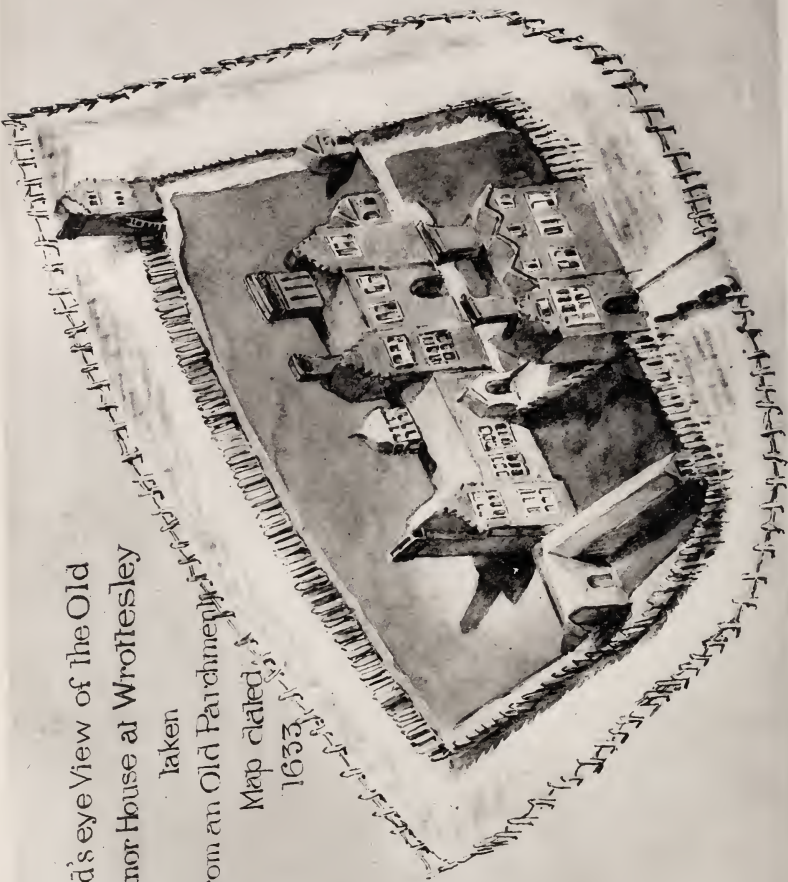 d's eye View of the Old
nor House at Wrottesley
taken
rom an Old Parchment
Map dated
1633